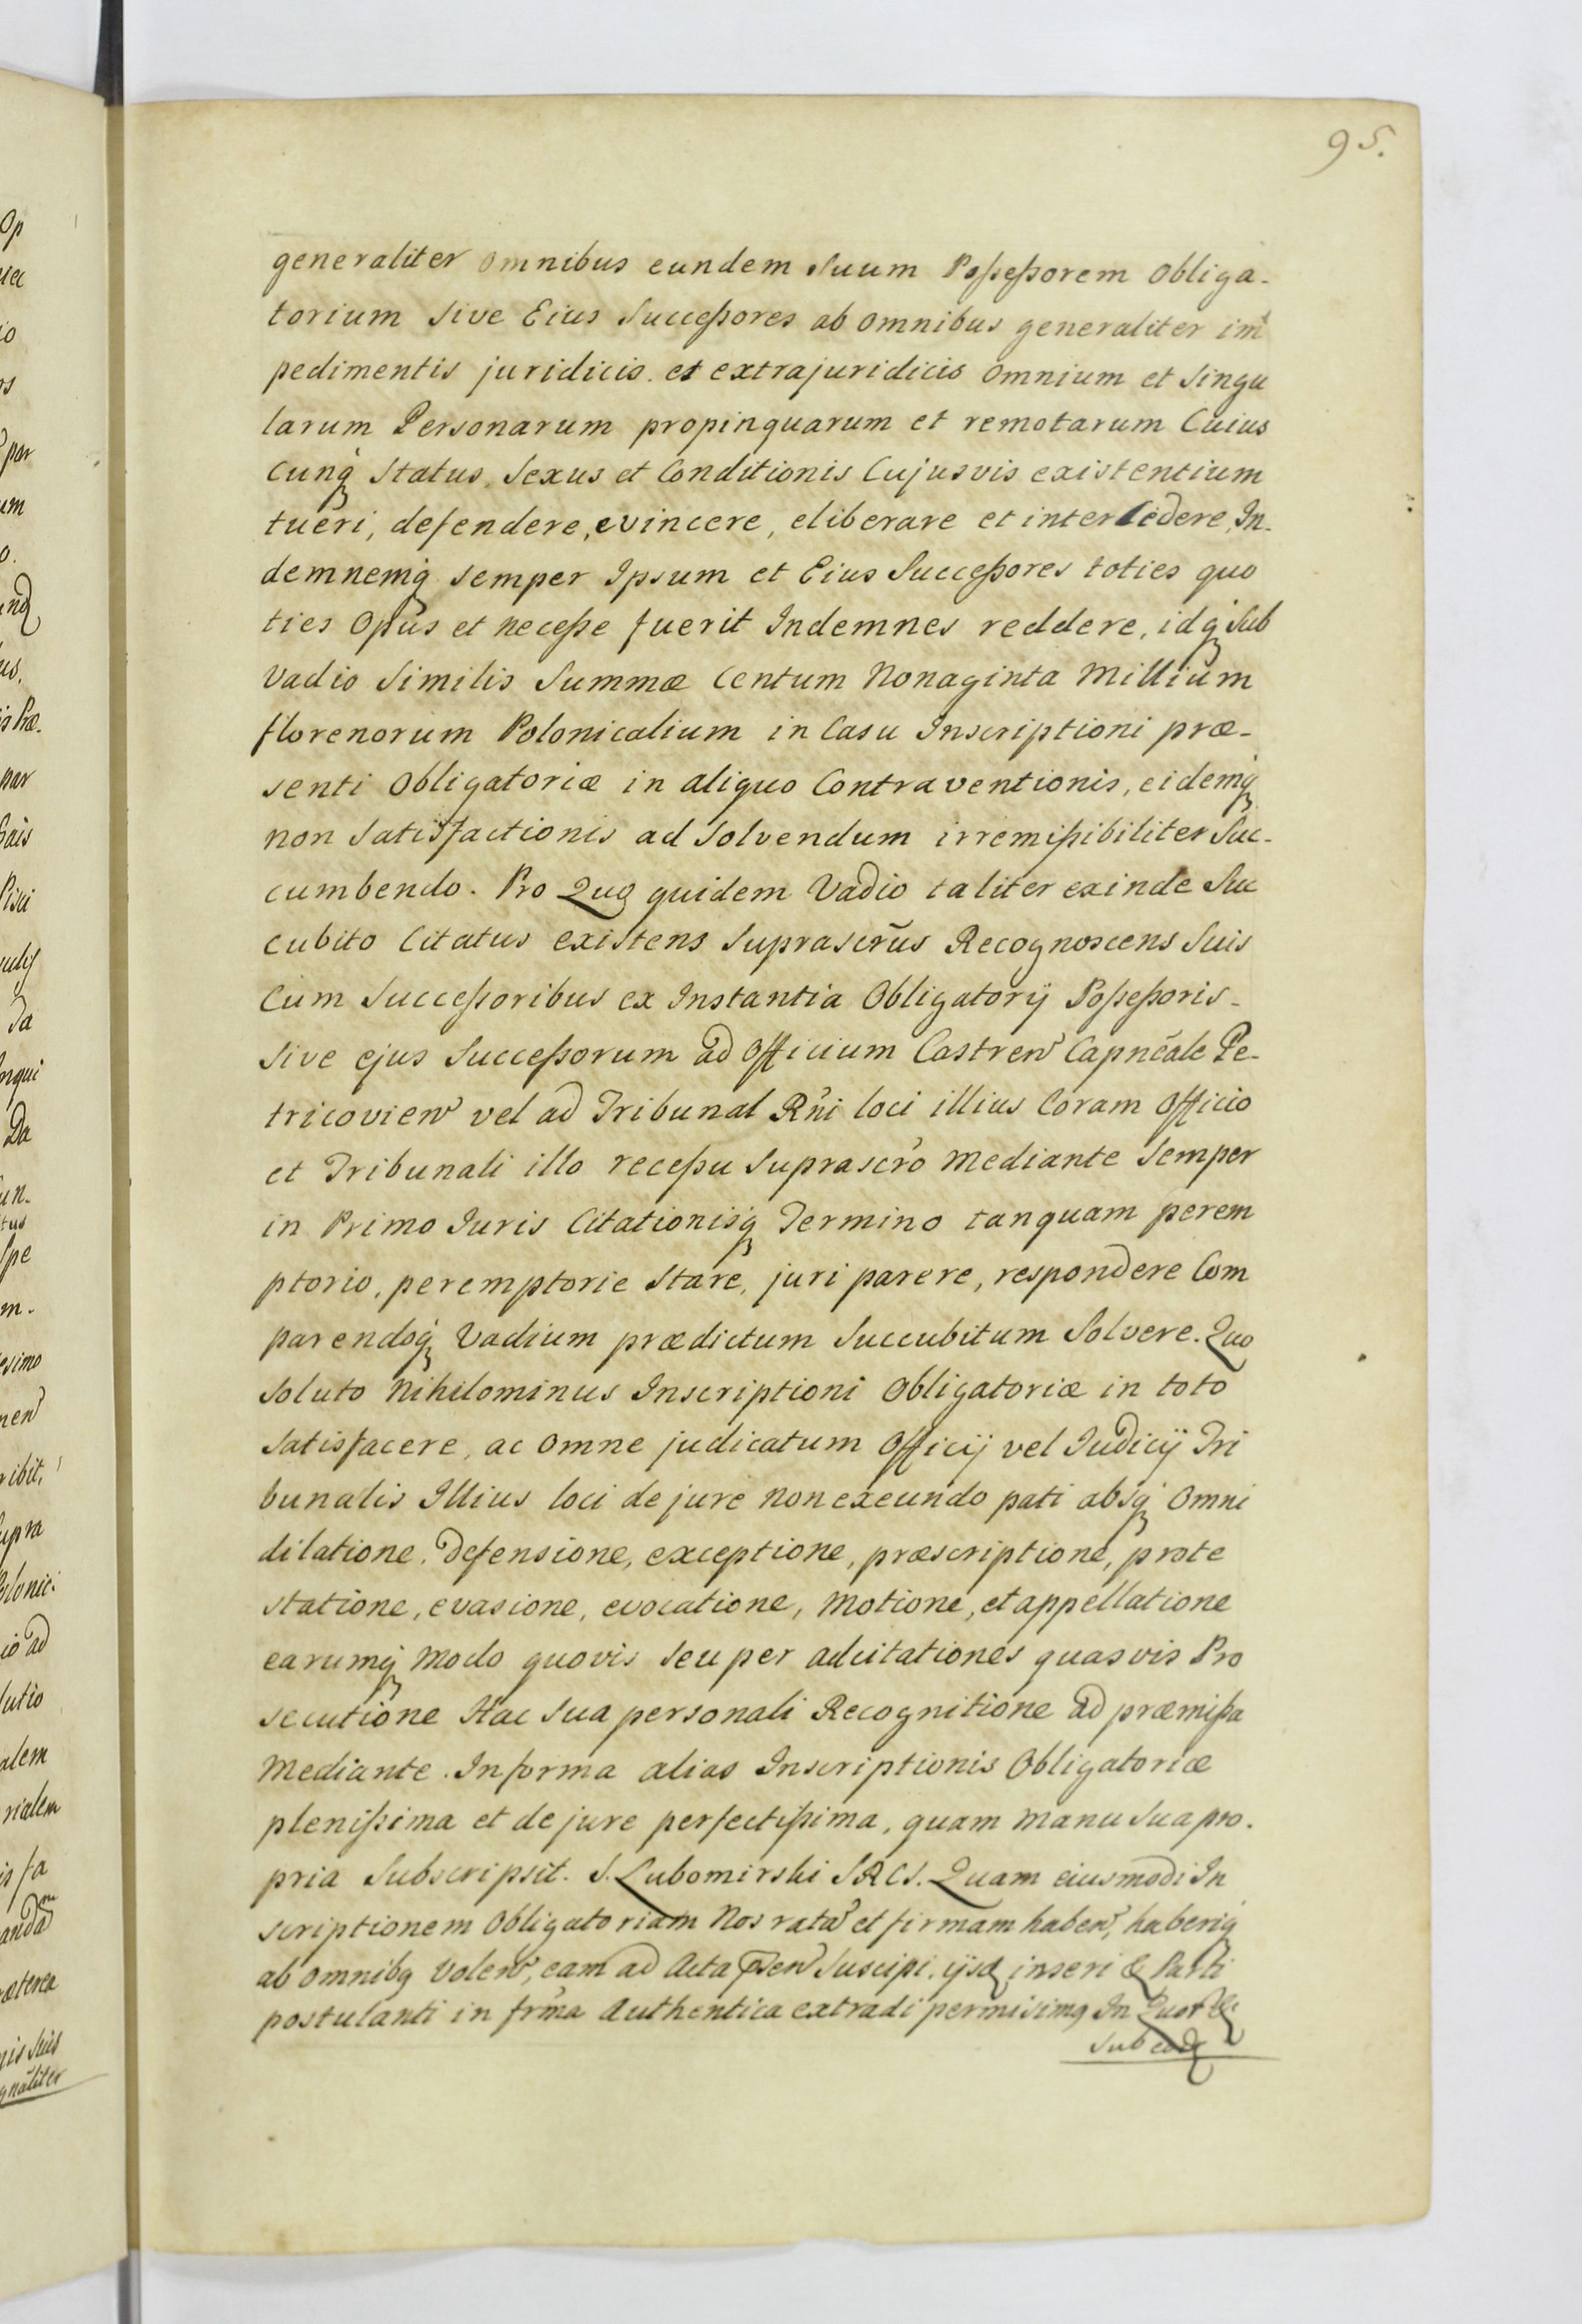 95.
generaliter omnibus eundem suum Poßeßorem Obliga-
torium sive Eius Succeßores ab omnibus generaliter im
pedimentis juridicis et extrajuridicis omnium et singu
larum Personarum propinquarum et remotarum Cuius
cunq, Status, Sexus et Conditionis Cujusvis existentium
tueri, defendere, evincere, eliberare et intercedere, In-
demnemq, semper Ipsum et Eius Succeßores toties quo
ties Opus et neceße fuerit Indemnes reddere, idq, sub
Vadio Similis Summæ Centum Nonaginta Millium
florenorum Polonicalium in Casu Inscriptioni præ-
senti Obligatoriæ in aliquo Contraventionis, eidemq,
non Satisfactionis ad Solvendum irremißibiliter Suc-
cumbendo. Pro Quo quidem Vadio taliter exinde Suc
cubito Citatus existens Suprascr̃us Recognoscens Suis
Cum Succeßoribus ex Instantia Obligatorij Poßeßoris-
sive ejus Succeßorum ad Officium Castren̄ Capnẽale Pe-
tricovien̄ vel ad Tribunal Rñi loci illius Coram Officio
et Tribunali illo receßu Suprascr̃o mediante Semper
in Primo Iuris Citationisq, Termino tanquam perem
ptorio, peremptorie Stare, juri parere, respondere Com
parendoq, Vadium prædictum Succubitum Solvere. Quo
Soluto Nihilominus Inscriptioni Obligatoriæ in toto
Satisfacere, ac omne judicatum Officij vel Iudicij Tri
bunalis Illius loci de jure non exeundo pati absq, Omni
dilatione, defensione, exceptione, præscriptione, prote
statione, evasione, evocatione, Motione, et appellatione
earumq, Modo quovis seu per adcitationes quasvis Pro
secutione Hac Sua personali Recognitione ad præmißa
Mediante. In forma alias Inscriptionis Obligatoriæ
plenißima et de jure perfectißima, quam Manu Sua pro-
pria Subscripsit. S. Lubomirski SRCS. Quam eiusmodi In
scriptionem Obligatoriam Nos ratã et firmam haben̄, haberiq,
ab Omnibq Volen̄, eam ad Acta p̃sen̄ Suscipi, ijsq, inseri & Parti
postulanti in fr̃ma Authentica extradi permisimq In Quor &